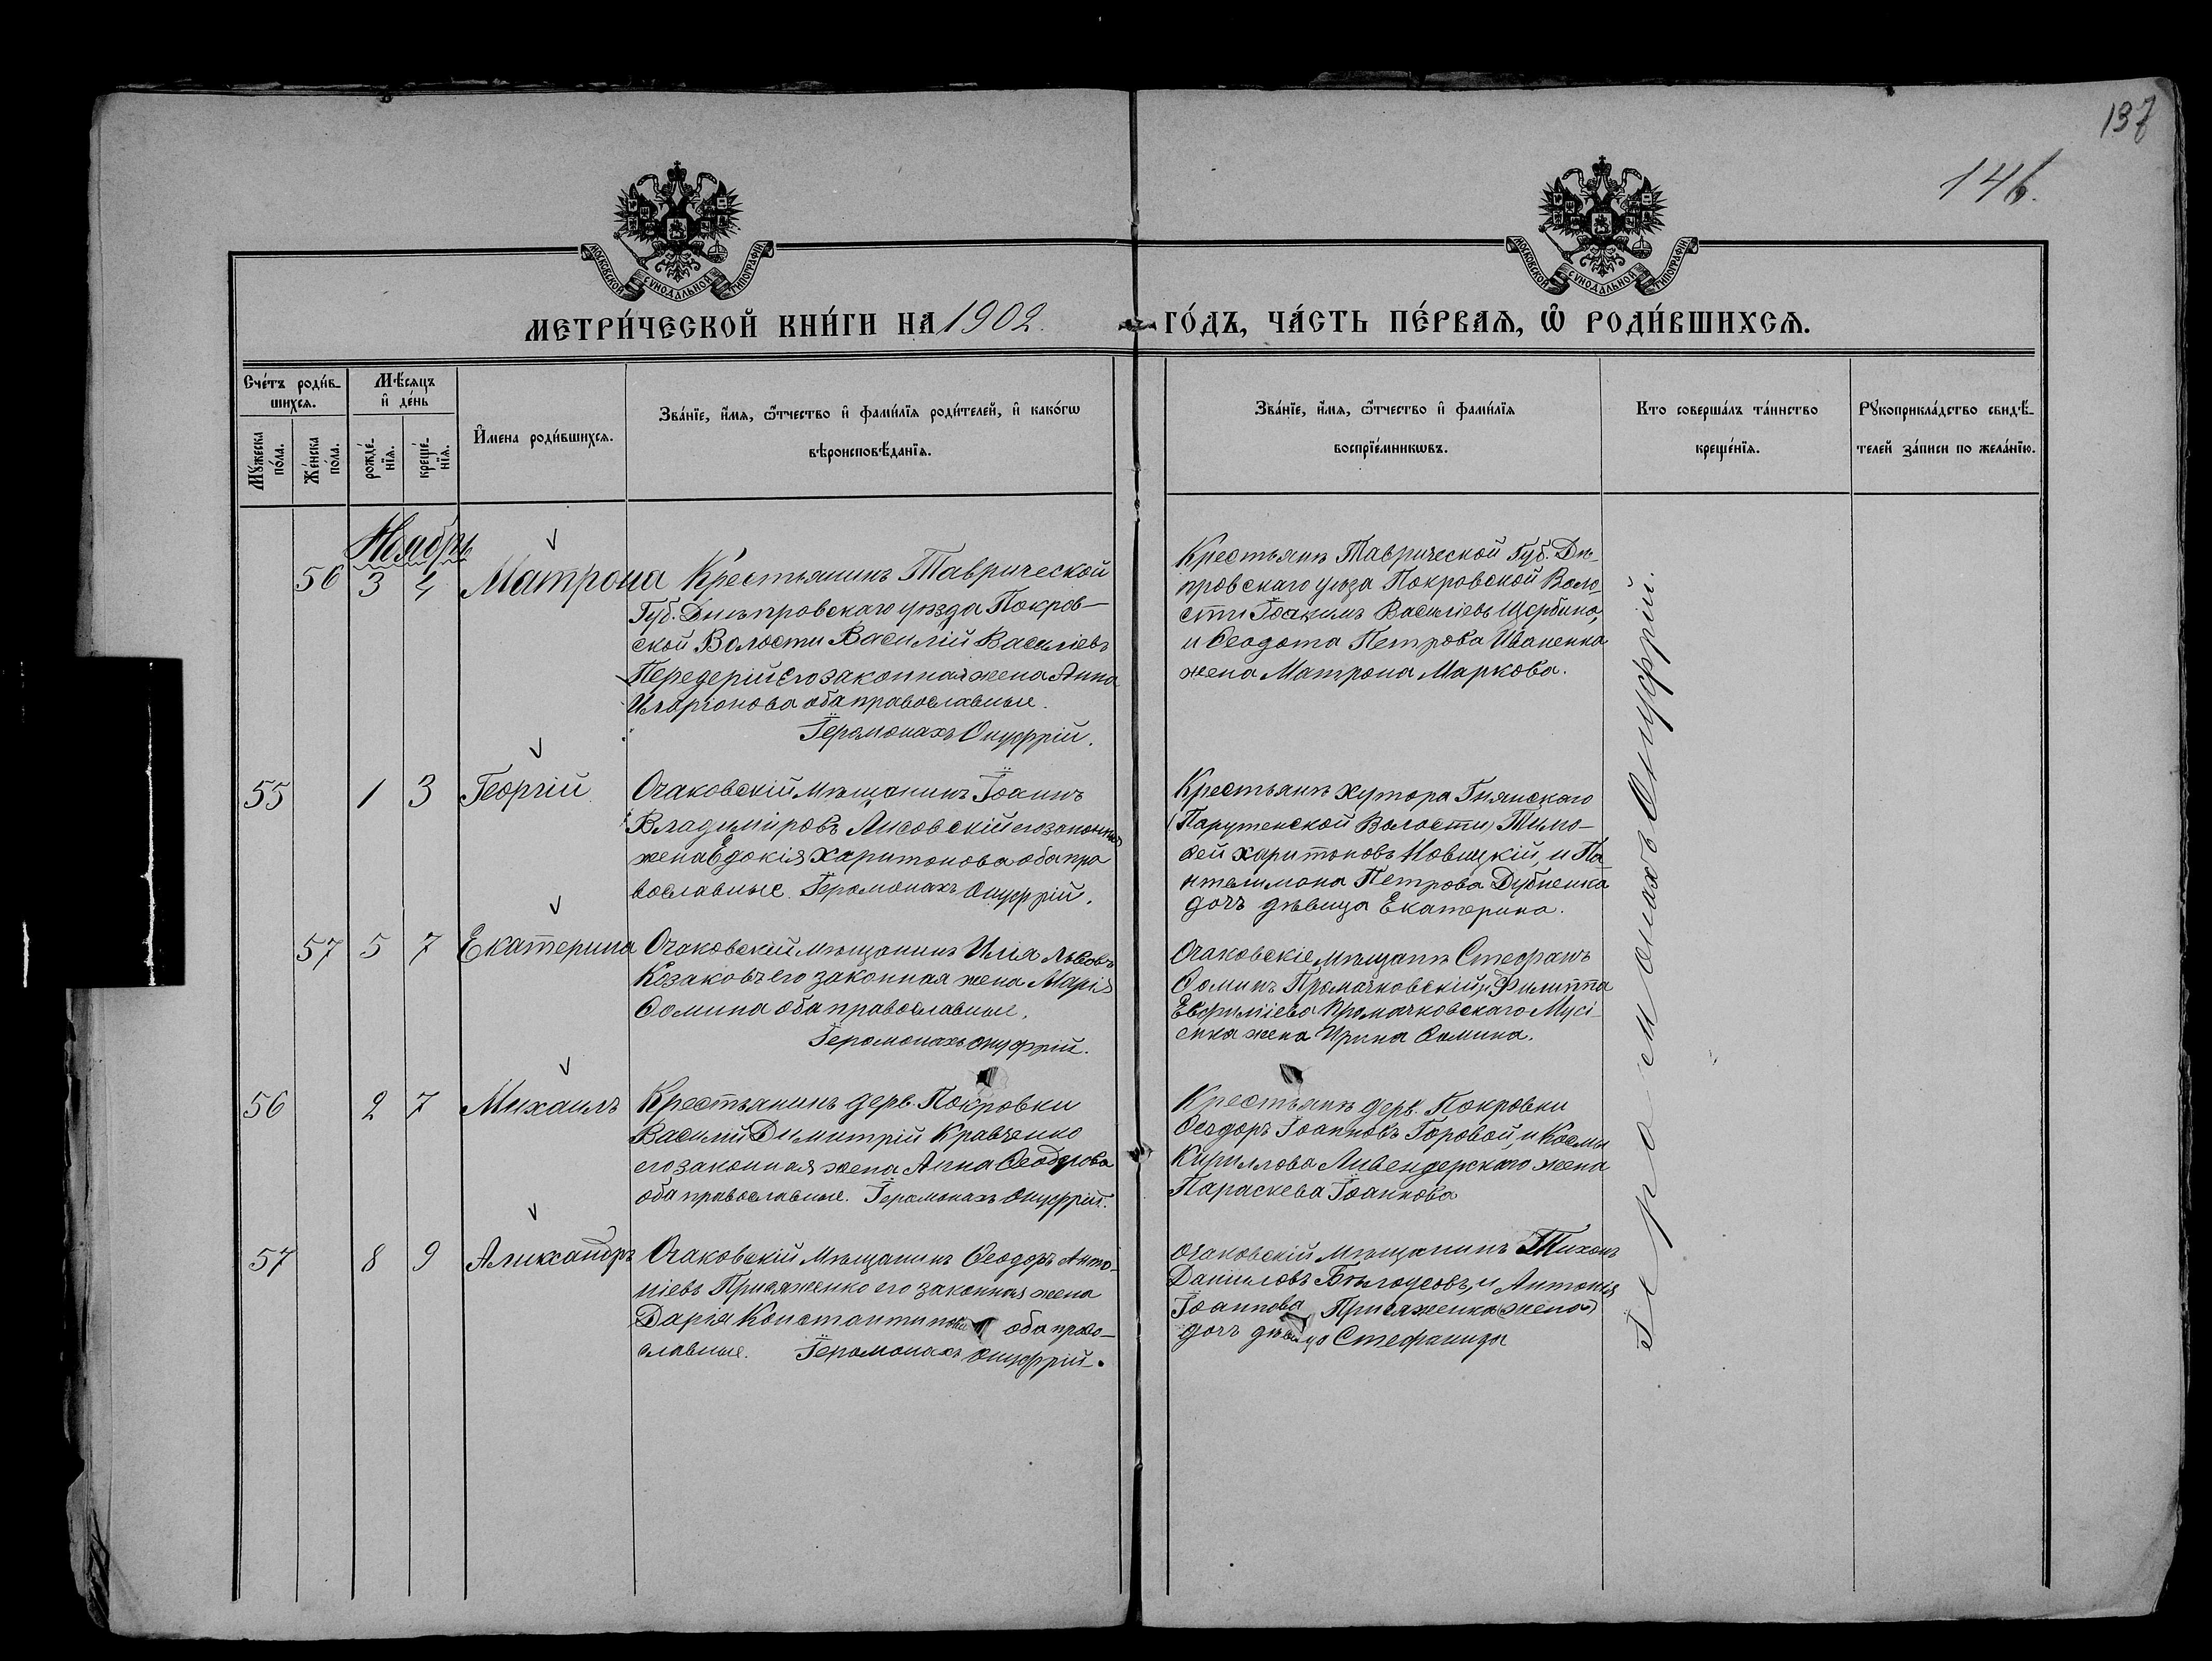 137
146.
МОСКОВСКОЙ СУНОДАЛЬНОЙ ТИПОГРАФІИ
МОСКОВСКОЙ СУНОДАЛЬНОЙ ТИПОГРАФІИ
МЕТРИ́ЧЕСКОЙ КНИ́ГИ НА 1902. ГО́ДЪ, ЧА́СТЬ ПЕ́РВАѦ, Ѽ РОДИ́ВШИХСѦ.
Сче́тъ роди́в-
шихсѧ.
Мѣ́сѧцъ
и҆ де́нь
Мꙋ́жеска
по́ла.
Же́нска
по́ла.
рожде́-
нїѧ.
креще́-
нїѧ.
И҆мена роди́вшихсѧ.
Зва́нїе, и҆́мѧ, ѻ҆́тчество и҆ фами́лїѧ роди́телей, и҆ како́гѡ
вѣроисповѣ́данїѧ.
Зва́нїе, и҆́мѧ, ѻ҆́тчество и҆ фами́лїѧ
воспрїе́мникѡвъ.
Кто соверша́лъ та́инство
креще́нїѧ.
Рꙋкоприкла́дство свидѣ́-
телей за́писи по жела́нїю.
Ноябрь
56 3 4 Матрона Крестьянинъ Таврической
Губ. Днѣпровскаго уѣзда Покров-
ской Волости Василій Василіевъ
Передерій Его законная жена Анна
Иларіонова оба православные.
Іеромонахъ Онуфрій.
Крестьянѣ Таврической Губ. Днѣ-
провскаго уѣзда Покровской Воло-
сти Іоакимъ Василіевъ Щербина,
и Ѳеодота Петрова Иваненка
жена Матрона Маркова.
55 1 3 Георгій Очаковскій Мѣщанинъ Іоаннъ
Владиміровъ Лисовскій его законная
жена Евдокія Харитонова оба пра
вославные. Іеромонахъ Онуфрій.
Крестьянѣ хутора
(Парутенской Волости) Тимо-
ѳей Харитоновъ Новицкій, и Па-
нтелимона Петрова Дубненка
дочь дѣвица Екатерина.
57 5 7 Екатерина Очаковскій мѣщанинъ Илія Львовъ
Козаковъ его законная жена Марія
Ѳомина оба православные.
Іеромонахъ Онуфрій.
Очаковскіе мѣщанѣ Стефанъ
Ѳоминъ Промачковскій, и Филиппа
Евфиміева Промачковскаго Мусі-
енка жена Ирина Ѳомина.
56 2 7 Михаилъ Крестьянинъ дерв. Покровки
Василій Димитрій Кравченко
его законная жена Анна Ѳеодорова
оба православные. Іеромонахъ Онуфрій.
Крестьянѣ дерв. Покровки
Ѳеодоръ Іоанновъ Горовой, и Космы
Кириллова Ливендерскаго жена
Параскева Іоаннова
57 8 9 Александръ Очаковскій Мѣщанинъ Ѳеодоръ Анто-
ніевъ Присяженко его законная жена
Дарія Константинова оба право-
славные. Іеромонахъ Онуфрій.
Очаковскій мѣщанинъ Тихонъ
Данииловъ Бѣлоусовъ, и Антонія
Іоаннова Присяженка (жена)
дочь дѣвица Стефанида
Іеромонахъ Онуфрій.